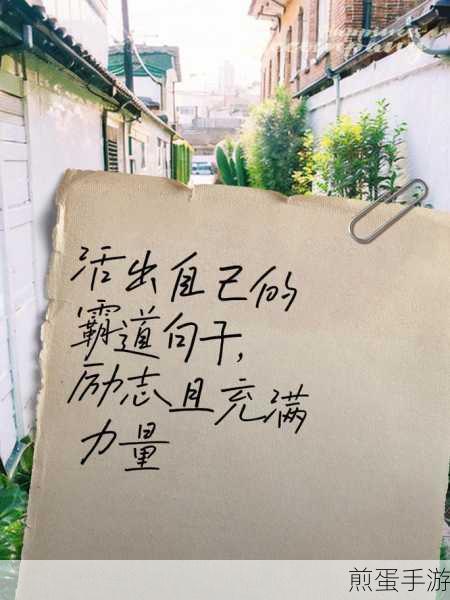 活出自己的
霸道句子,
励志且充满
力量
煎蛋手游